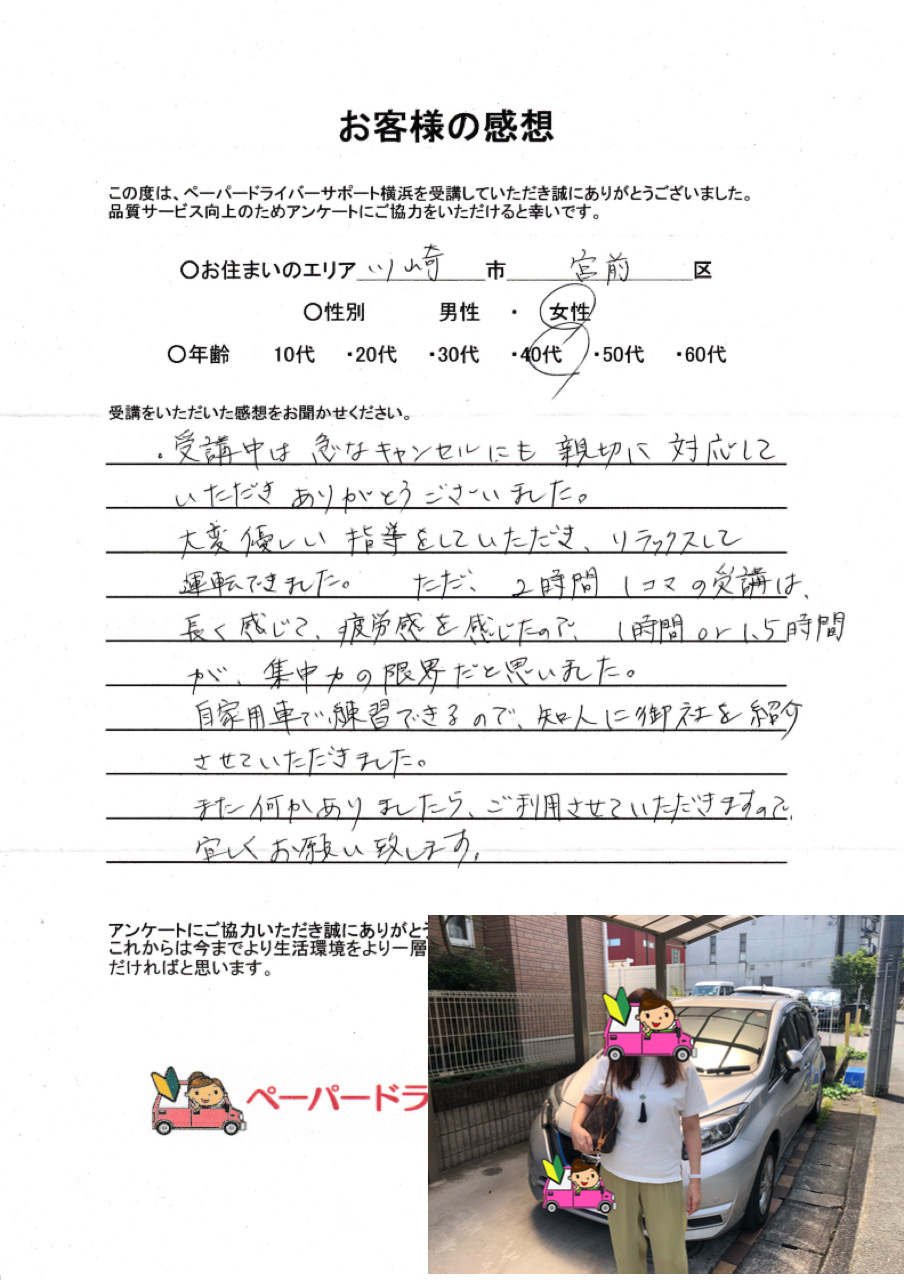 お客様の感想
この度は、ペーパードライバーサポート横浜を受講していただき誠にありがとうございました。
品質サービス向上のためアンケートにご協力をいただけると幸いです。
〇お住まいのエリア 川崎 市 宮前 区
〇性別 男性 ・ 女性
〇年齢 10代 ・20代 ・30代 ・40代 ・50代 ・60代
受講をいただいた感想をお聞かせください。
・受講中は 急なキャンセルにも 親切に 対応して
いただき ありがとうございました。
大変優しい 指導をしていただき、リラックスして
運転できました。 ただ、2時間 1コマの受講は、
長く感じて、疲労感を感じたので、1時間or1.5時間
が、集中力の限界だと思いました。
自家用車で練習できるので、知人に御社を紹介
させていただきました。
また何かありましたら、ご利用させていただきますので、
宜しくお願い致します。
アンケートにご協力いただき誠にありがとう
これからは今までより生活環境をより一層
だければと思います。
ペーパードラ